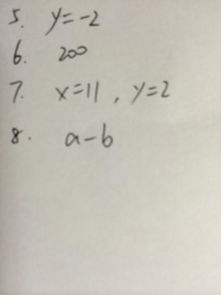 5. y=-2
6. 200
7. x=11, y=2
8. a-b